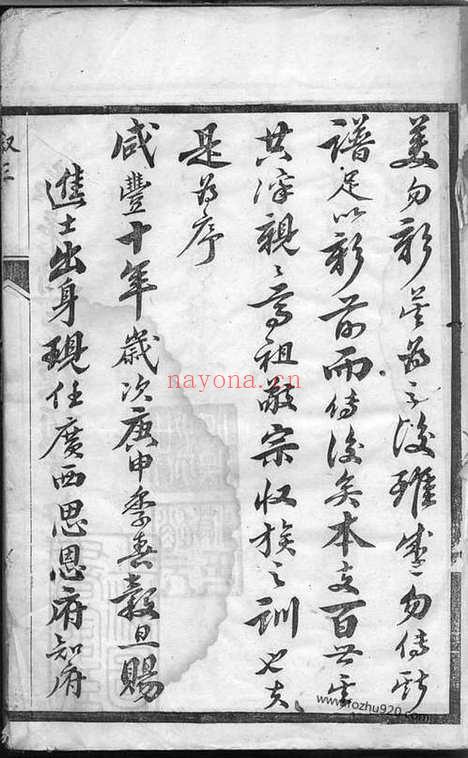 美勿彰莫為之後雖盛勿傳斯
譜足以彰前而傳後矣本支百世
共深親〻尊祖敬宗收族之訓也夫
是為序
咸豐十年歲次庚申季春穀旦賜
進士出身現任廣西思恩府知府
三
nayona.cn
www.rozhu920.com